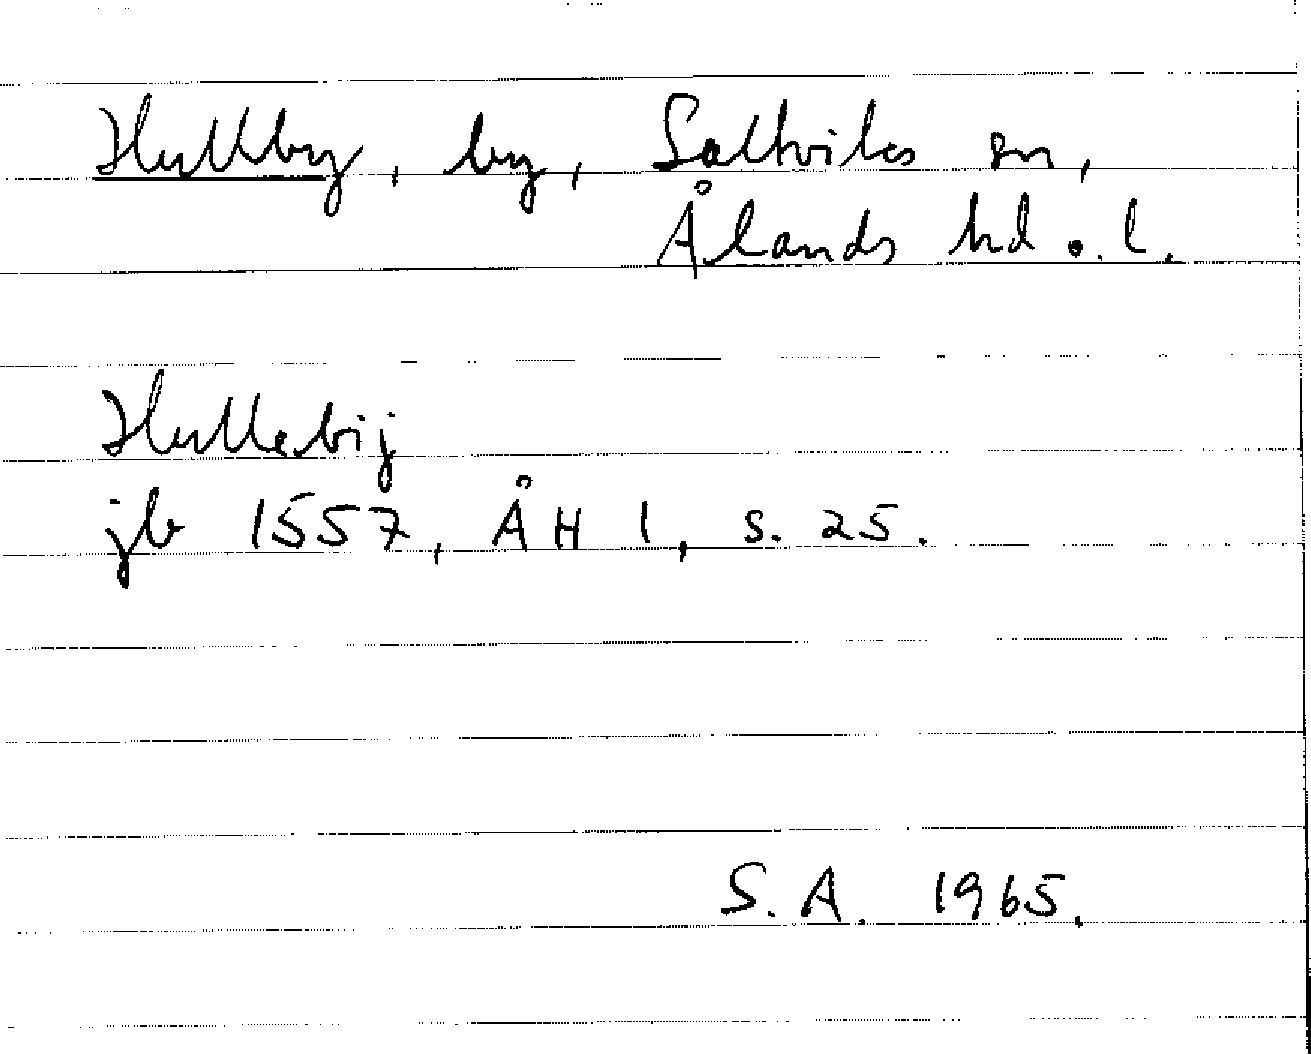 Hullby, by, Saltviks sn,
Ålands hd o. l.
Hullebij
jb 1557, ÅH 1, s. 25.
S. A. 1965.